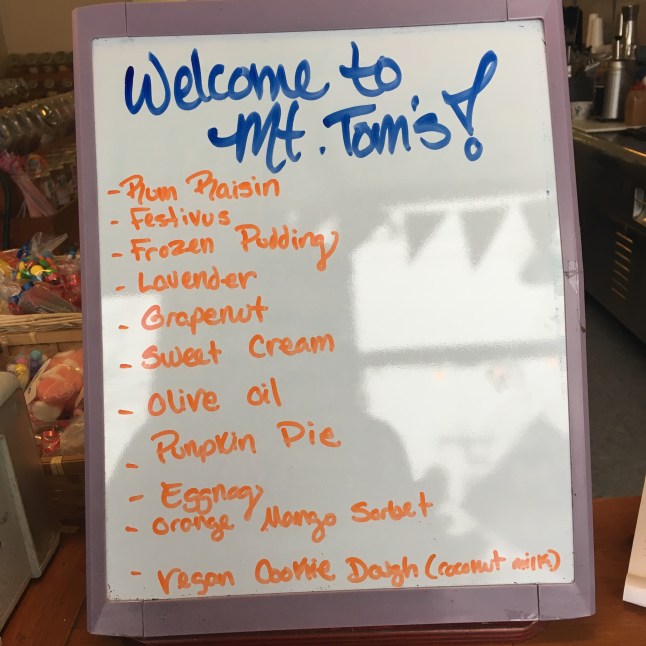 Welcome to
Mt. Tom's!
- Rum Raisin
- Festivus
- Frozen Pudding
- Lavender
- Grapenut
- Sweet Cream
- Olive Oil
- Pumpkin Pie
- Eggnog
- Orange Mango Sorbet
- Vegan Cookie Dough (coconut milk)